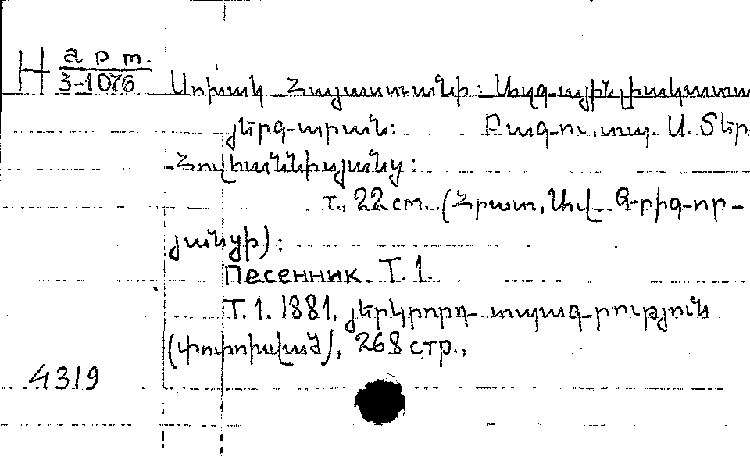 Н арт.
3-1076
Սոխակ Հայաստանի: Ազգային լիակատար
յերգարան: Բագու, տպ. Ա. Տեր
Հովհաննիսյանց:
т., 22 cm. (Հրատ. Ավ. Գրիգոր-
յանցի):
Песенник. Т. 1.
Т. 1. 1881. յերկրորդ տպագրություն
(փոփոխված), 268 стр.,
4319